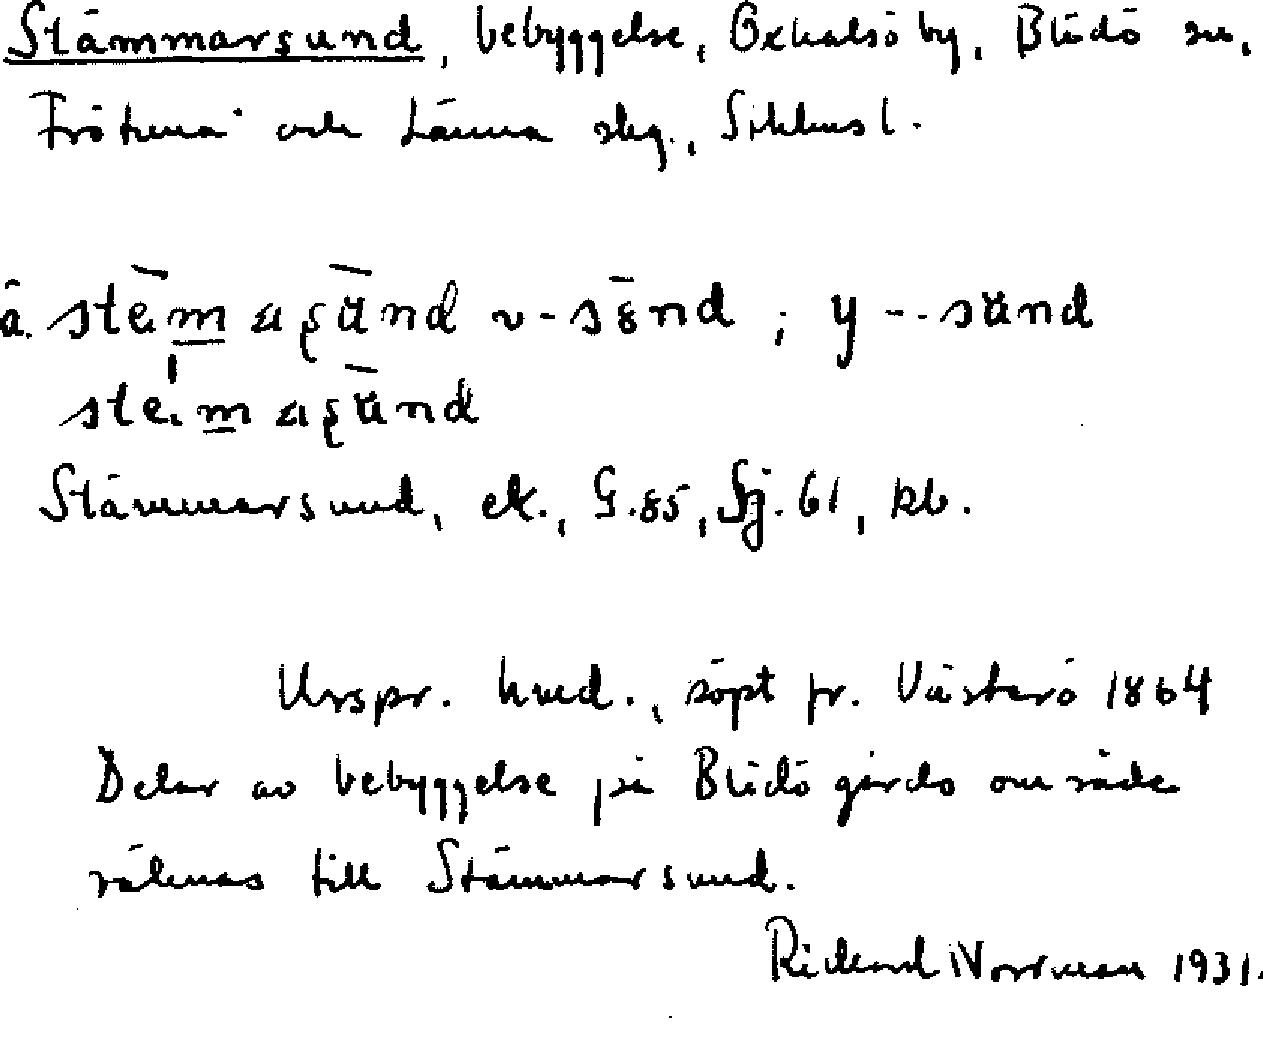 Stämmarsund, bebyggelse, Oxhalsö by, Blidö sn,
Frötuna och Länna slg., Sthlms l.
ä. stem v-sönd ; y --sund
Stämmarsund, ek., G.85, Sj.61, kb.
Urspr. hmd., köpt fr. Västerö 1864
Delar av bebyggelse på Blidö gårds område
räknas till Stämmarsund.
Rickard Norrman 1931.